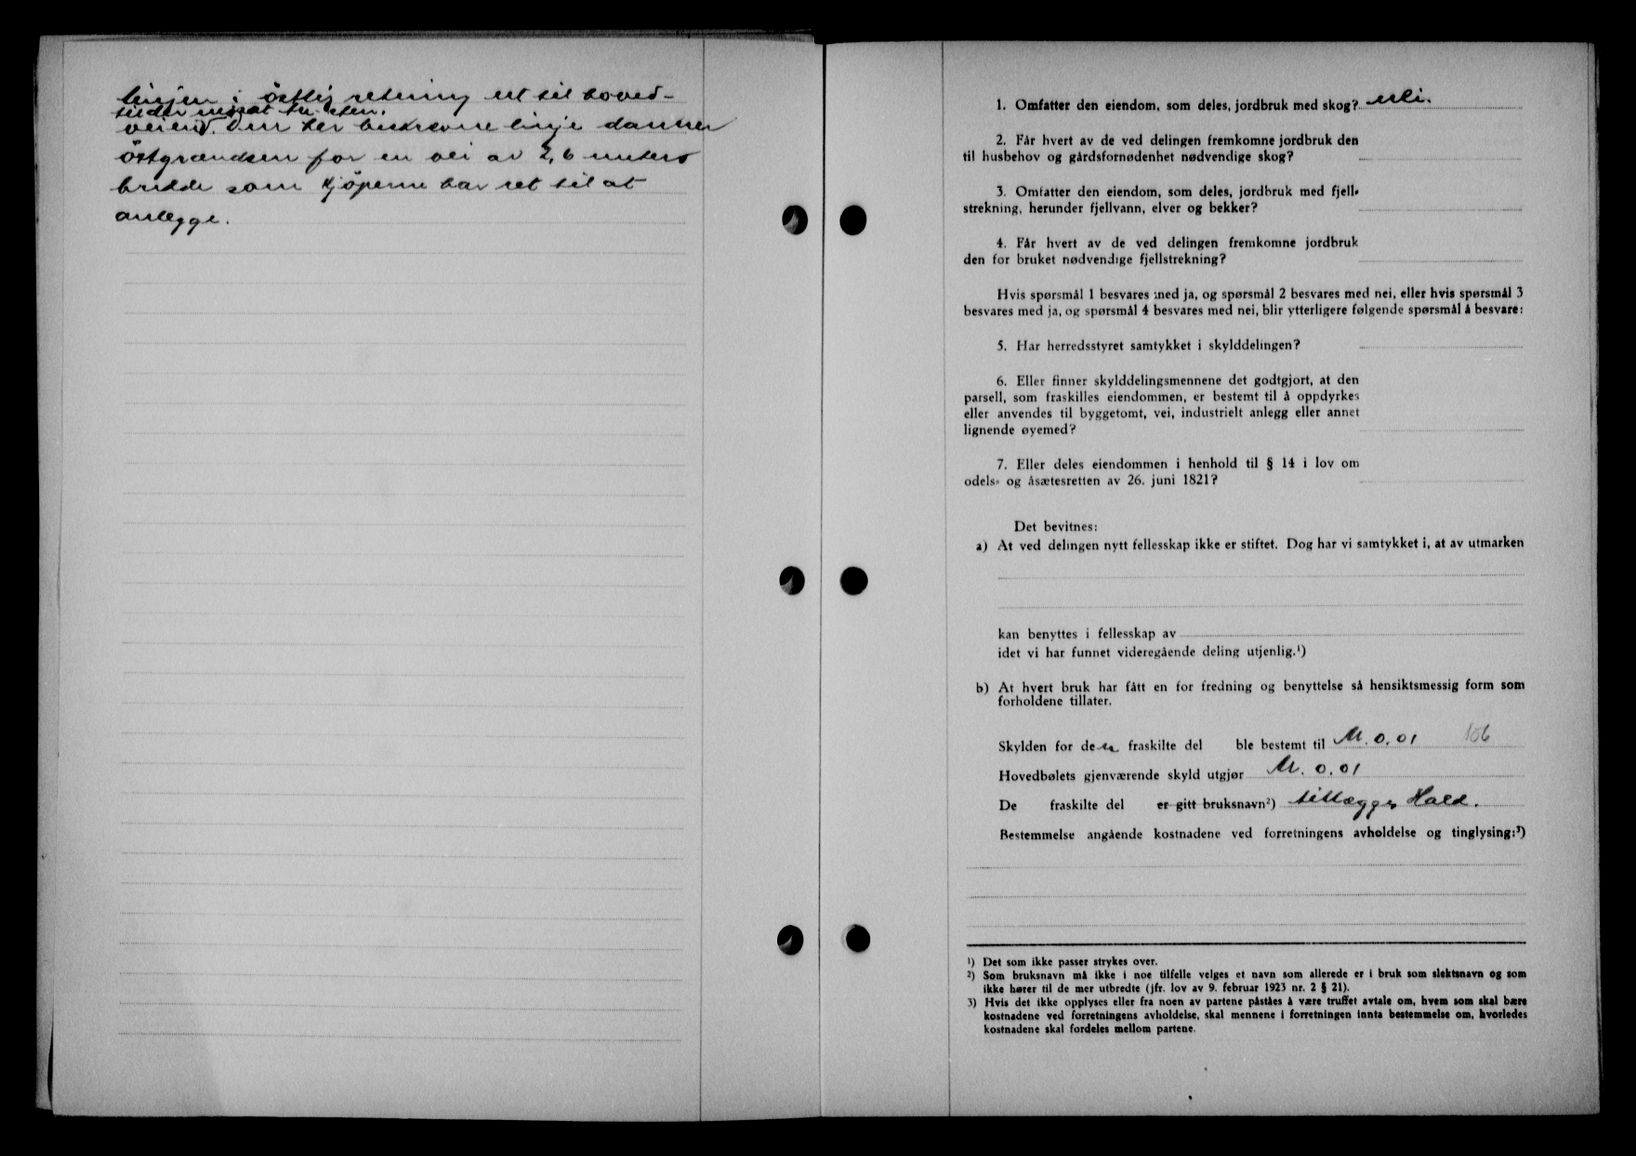 linjen i østlig retning ut til hoved-
veien. Den her beskrevne linje danner
østgrændsen for en vei av 2,6 meters
bredde som kjøperne har ret til at
anlegge.
1. Omfatter den eiendom, som deles, jordbruk med skog? Nei.
2. Får hvert av de ved delingen fremkomne jordbruk den
til husbehov og gårdsfornødenhet nødvendige skog?
3. Omfatter den eiendom, som deles, jordbruk med fjell-
strekning, herunder fjellvann, elver og bekker?
4. Får hvert av de ved delingen fremkomne jordbruk
den for bruket nødvendige fjellstrekning?
Hvis spørsmål 1 besvares med ja, og spørsmål 2 besvares med nei, eller hvis spørsmål 3
besvares med ja, og spørsmål 4 besvares med nei, blir ytterligere følgende spørsmål å besvare:
5. Har herredsstyret samtykket i skylddelingen?
6. Eller finner skylddelingsmennene det godtgjort, at den
parsell, som fraskilles eiendommen, er bestemt til å oppdyrkes
eller anvendes til byggetomt, vei, industrielt anlegg eller annet
lignende øyemed?
7. Eller deles eiendommen i henhold til § 14 i lov om
odels- og åsætesretten av 26. juni 1821?
Det bevitnes:
a) At ved delingen nytt fellesskap ikke er stiftet. Dog har vi samtykket i, at av utmarken
kan benyttes i fellesskap av
idet vi har funnet videregående deling utjenlig.¹)
b) At hvert bruk har fått en for fredning og benyttelse så hensiktsmessig form som
forholdene tillater.
Skylden for den fraskilte del ble bestemt til M. 0.01 106
Hovedbølets gjenværende skyld utgjør M. 0.01
De fraskilte del er gitt bruksnavn²) tillægges Hald.
Bestemmelse angående kostnadene ved forretningens avholdelse og tinglysing:³)
¹) Det som ikke passer strykes over.
²) Som bruksnavn må ikke i noe tilfelle velges et navn som allerede er i bruk som slektsnavn og som
ikke hører til de mer utbredte (jfr. lov av 9. februar 1923 nr. 2 § 21).
3) Hvis det ikke opplyses eller fra noen av partene påståes å være truffet avtale om, hvem som skal bære
kostnadene ved forretningens avholdelse, skal mennene i forretningen innta bestemmelse om, hvorledes
kostnadene skal fordeles mellom partene.